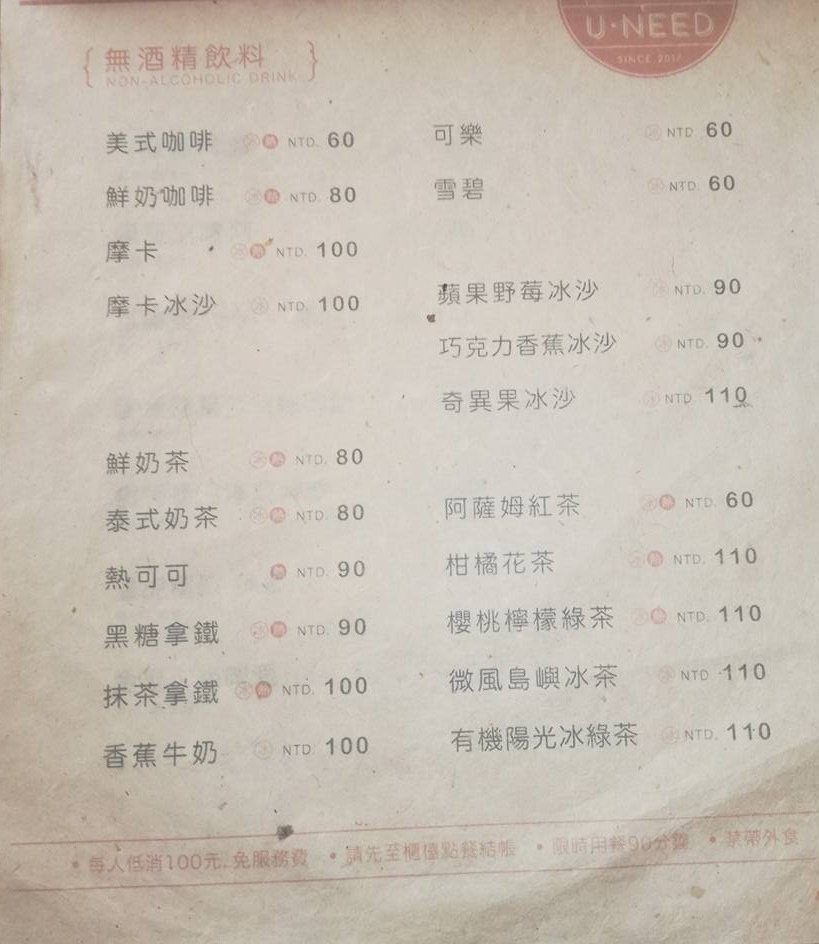 U·NEED
SINCE 2017
{ 無酒精飲料 }
NON-ALCOHOLIC DRINK
美式咖啡 冰 熱 NTD. 60
鮮奶咖啡 冰 熱 NTD. 80
摩卡 冰 熱 NTD. 100
摩卡冰沙 冰 NTD. 100
鮮奶茶 冰 熱 NTD. 80
泰式奶茶 冰 熱 NTD. 80
熱可可 熱 NTD. 90
黑糖拿鐵 冰 熱 NTD. 90
抹茶拿鐵 冰 熱 NTD. 100
香蕉牛奶 冰 NTD. 100
可樂 冰 NTD. 60
雪碧 冰 NTD. 60
蘋果野莓冰沙 冰 NTD. 90
巧克力香蕉冰沙 冰 NTD. 90
奇異果冰沙 冰 NTD. 110
阿薩姆紅茶 冰 熱 NTD. 60
柑橘花茶 冰 熱 NTD. 110
櫻桃檸檬綠茶 冰 熱 NTD. 110
微風島嶼冰茶 冰 NTD. 110
有機陽光冰綠茶 冰 NTD. 110
•每人低消100元,免服務費 •請先至櫃檯點餐結帳 •限時用餐90分鐘 •禁帶外食